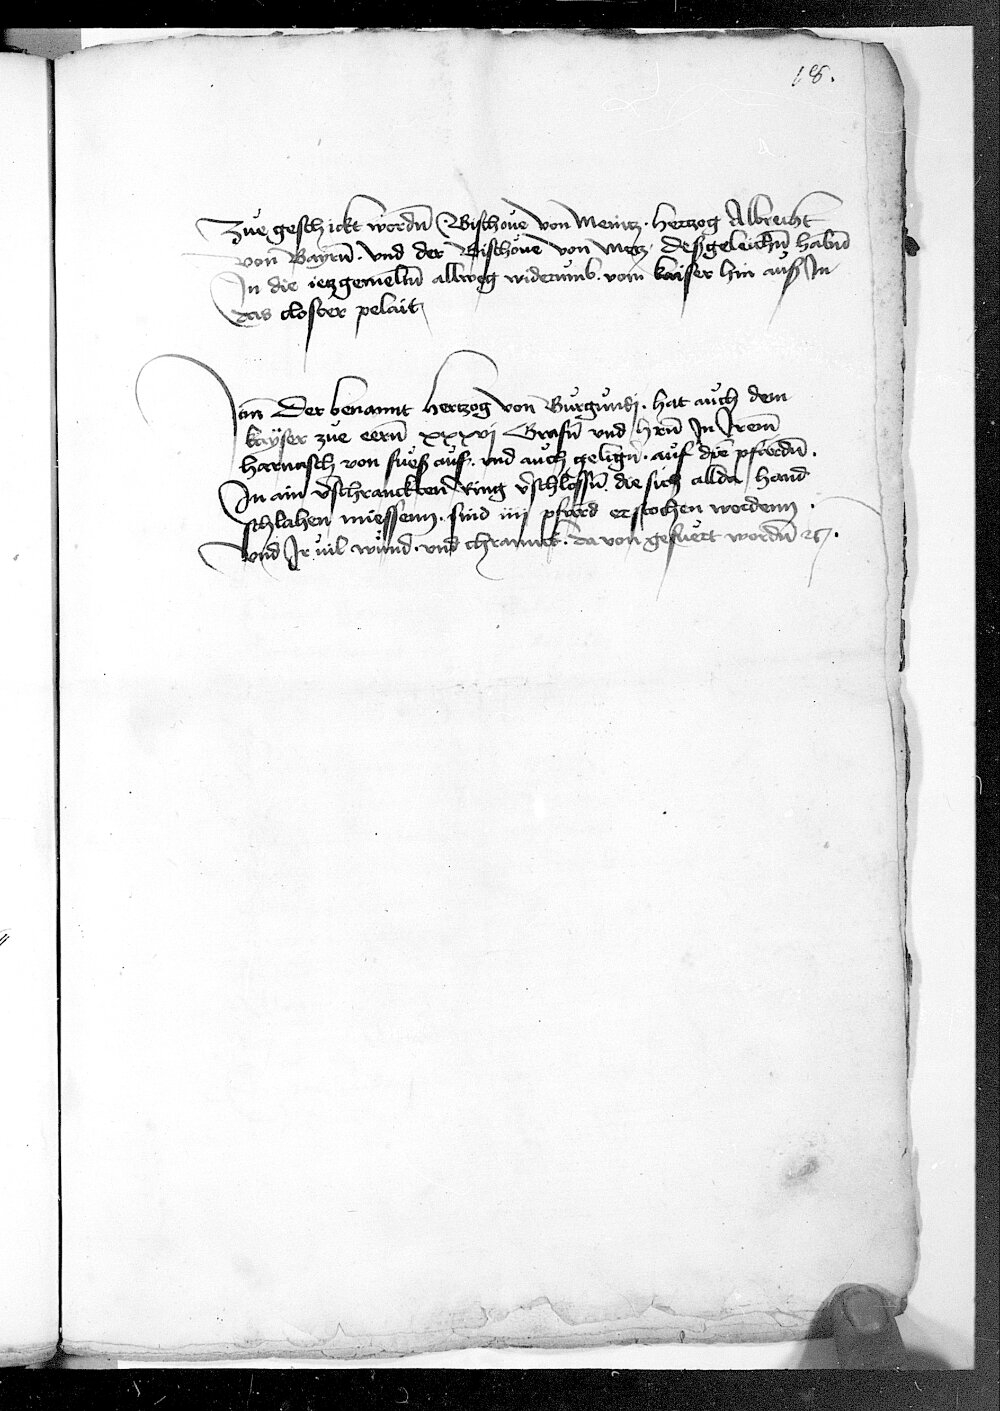 18.
Zue geschickt wordn̄ Bischoue von Meintz. hertzog Albrecht
von Bayrn̄. vnd der Bischoue von Metz. desgeleichn̄ habn̄
In die ietzgemeltn̄ allweg widerumb. vom kaiser hin auß In
das closter pelait
Itm̄ Der benannt hertzog von Burgundj. hat auch dem
kayser zue eern̄ xxxvi Grafn̄ vnd hrn̄ In Irem̄
harnasch von fueß auf. vnd auch gelign̄. auf die pfärdn̄.
In ain v̄schranckten Ring v̄schlossn̄. die sich allda hand
schlahen miessenn. sind iiij pfärd erstochen wordenn.
vnd Ir vil wund. vnd chranncк. da von gefuert wordn̄ ꝛc.